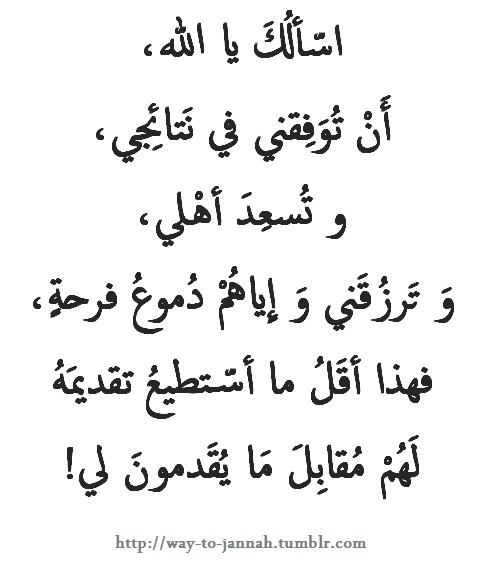 اسّألُكَ يا الله،
أَنْ تُوَفِقني في نَتائِجي،
و تُسعِدَ أهْلي،
وَ تَرزُقَني وَ إياهُمْ دُموعُ فرحةٍ،
فهذا أقَلُ ما أسّتطيعُ تقديمَهُ
لَهُمْ مُقابِلَ مَا يُقَدمونَ لي!
http://way-to-jannah.tumblr.com